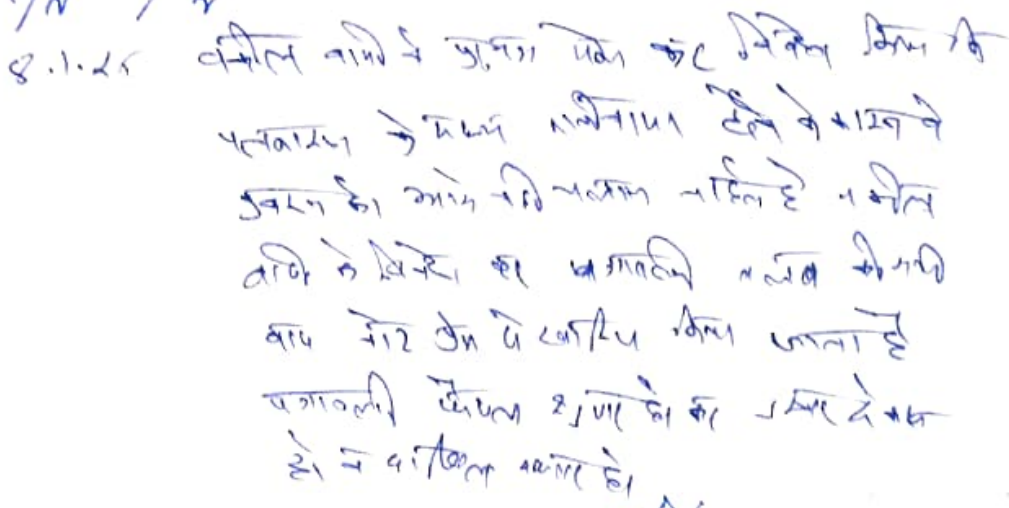 8.1.25 वकील वादी ने प्रार्थना पेश कर निवेदन किया कि
के मध्य राजीनामा होने के कारण वे
प्रकरण को आगे नही चलाना चाहते है वकील
वादी के निवेदन पर पत्रावली तलब की गयी
वाद नोट प्रेस में खारिज किया जाता है
पत्रावली फैसल शुमार हो कर नम्बर से कम
हो दाखिल दफ्तर हो।